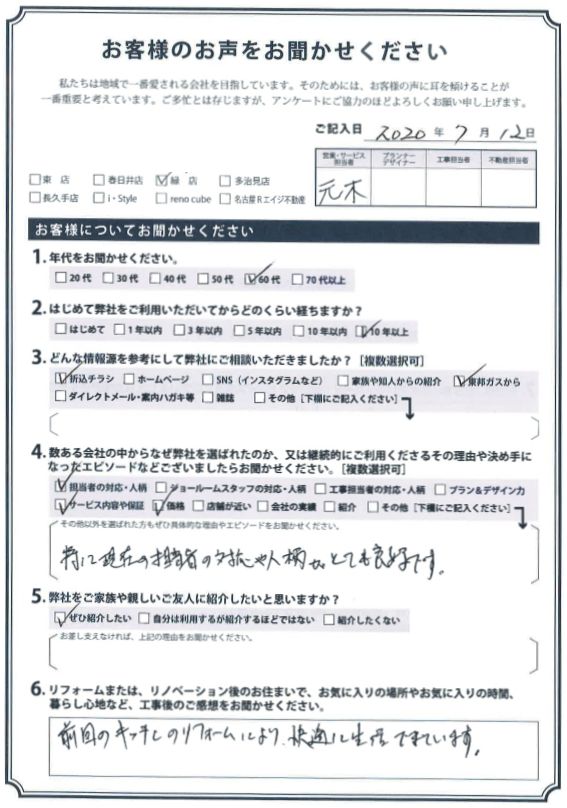 お客様のお声をお聞かせください
私たちは地域で一番愛される会社を目指しています。そのためには、お客様の声に耳を傾けることが
一番重要と考えています。ご多忙とは存じますが、アンケートにご協力のほどよろしくお願い申し上げます。
ご記入日 2020 年 7 月 12 日
営業・サービス担当者 プランナーデザイナー 工事担当者 不動産担当者
元木
□東 店 □春日井店 ☑緑 店 □多治見店
□長久手店 □i・Style □reno cube □名古屋Rエイジ不動産
お客様についてお聞かせください
1. 年代をお聞かせください。
□20代 □30代 □40代 □50代 ☑60代 □70代以上
2. はじめて弊社をご利用いただいてからどのくらい経ちますか？
□はじめて □1年以内 □3年以内 □5年以内 □10年以内 ☑10年以上
3. どんな情報源を参考にして弊社にご相談いただきましたか？［複数選択可］
☑折込チラシ □ホームページ □SNS（インスタグラムなど） □家族や知人からの紹介 ☑東邦ガスから
□ダイレクトメール・案内ハガキ等 □雑誌 □その他［下欄にご記入ください］
4. 数ある会社の中からなぜ弊社を選ばれたのか、又は継続的にご利用くださるその理由や決め手に
なったエピソードなどございましたらお聞かせください。［複数選択可］
☑担当者の対応・人柄 □ショールームスタッフの対応・人柄 □工事担当者の対応・人柄 □プラン&デザイン力
☑サービス内容や保証 ☑価格 □店舗が近い □会社の実績 □紹介 □その他［下欄にご記入ください］
その他以外を選ばれた方もぜひ具体的な理由やエピソードをお聞かせください。
特に現在の担当者の対応や人柄がとても良好です。
5. 弊社をご家族や親しいご友人に紹介したいと思いますか？
☑ぜひ紹介したい □自分は利用するが紹介するほどではない □紹介したくない
お差し支えなければ、上記の理由をお聞かせください。
6. リフォームまたは、リノベーション後のお住まいで、お気に入りの場所やお気に入りの時間、
暮らし心地など、工事後のご感想をお聞かせください。
前回のキッチンのリフォームにより、快適に生活できています。